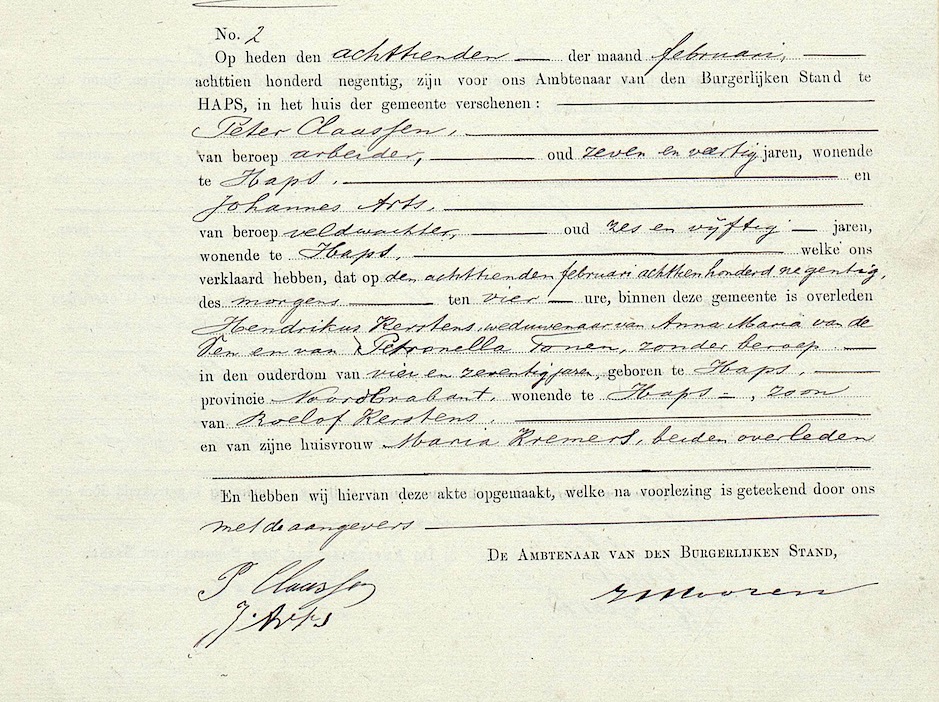 No. 2
Op heden den achttienden — der maand februari, —
achttien honderd negentig, zijn voor ons Ambtenaar van den Burgerlijken Stand te
HAPS, in het huis der gemeente verschenen: —
Peter Claassen, —
van beroep arbeider, — oud zeven en veertig jaren, wonende
te Haps, — en
Johannes Arts, —
van beroep veldwachter, — oud zes en vijftig — jaren,
wonende te Haps, — welke ons
verklaard hebben, dat op den achttienden februari achttienhonderd negentig,
des morgens — ten vier — ure, binnen deze gemeente is overleden
Hendrikus Kerstens, weduwenaar van Anna Maria van de
Ven en van Petronella Tonen, zonder beroep —
in den ouderdom van vier en zeventig jaren, geboren te Haps, —
provincie Noordbrabant, wonende te Haps –, zoon
van Roelof Kerstens, —
en van zijne huisvrouw Maria Kremers, beiden overleden
En hebben wij hiervan deze akte opgemaakt, welke na voorlezing is geteekend door ons
met de aangevers —
DE AMBTENAAR VAN DEN BURGERLIJKEN STAND,
P Claassen
J. Arts